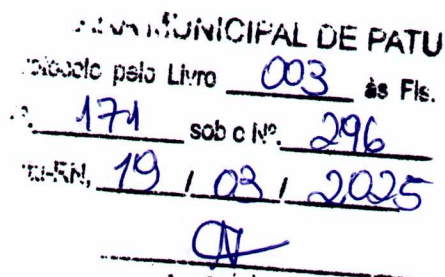 MUNICIPAL DE PATU
pelo Livro 003 às Fls.
171 sob o Nº. 296
19 / 03 / 2025